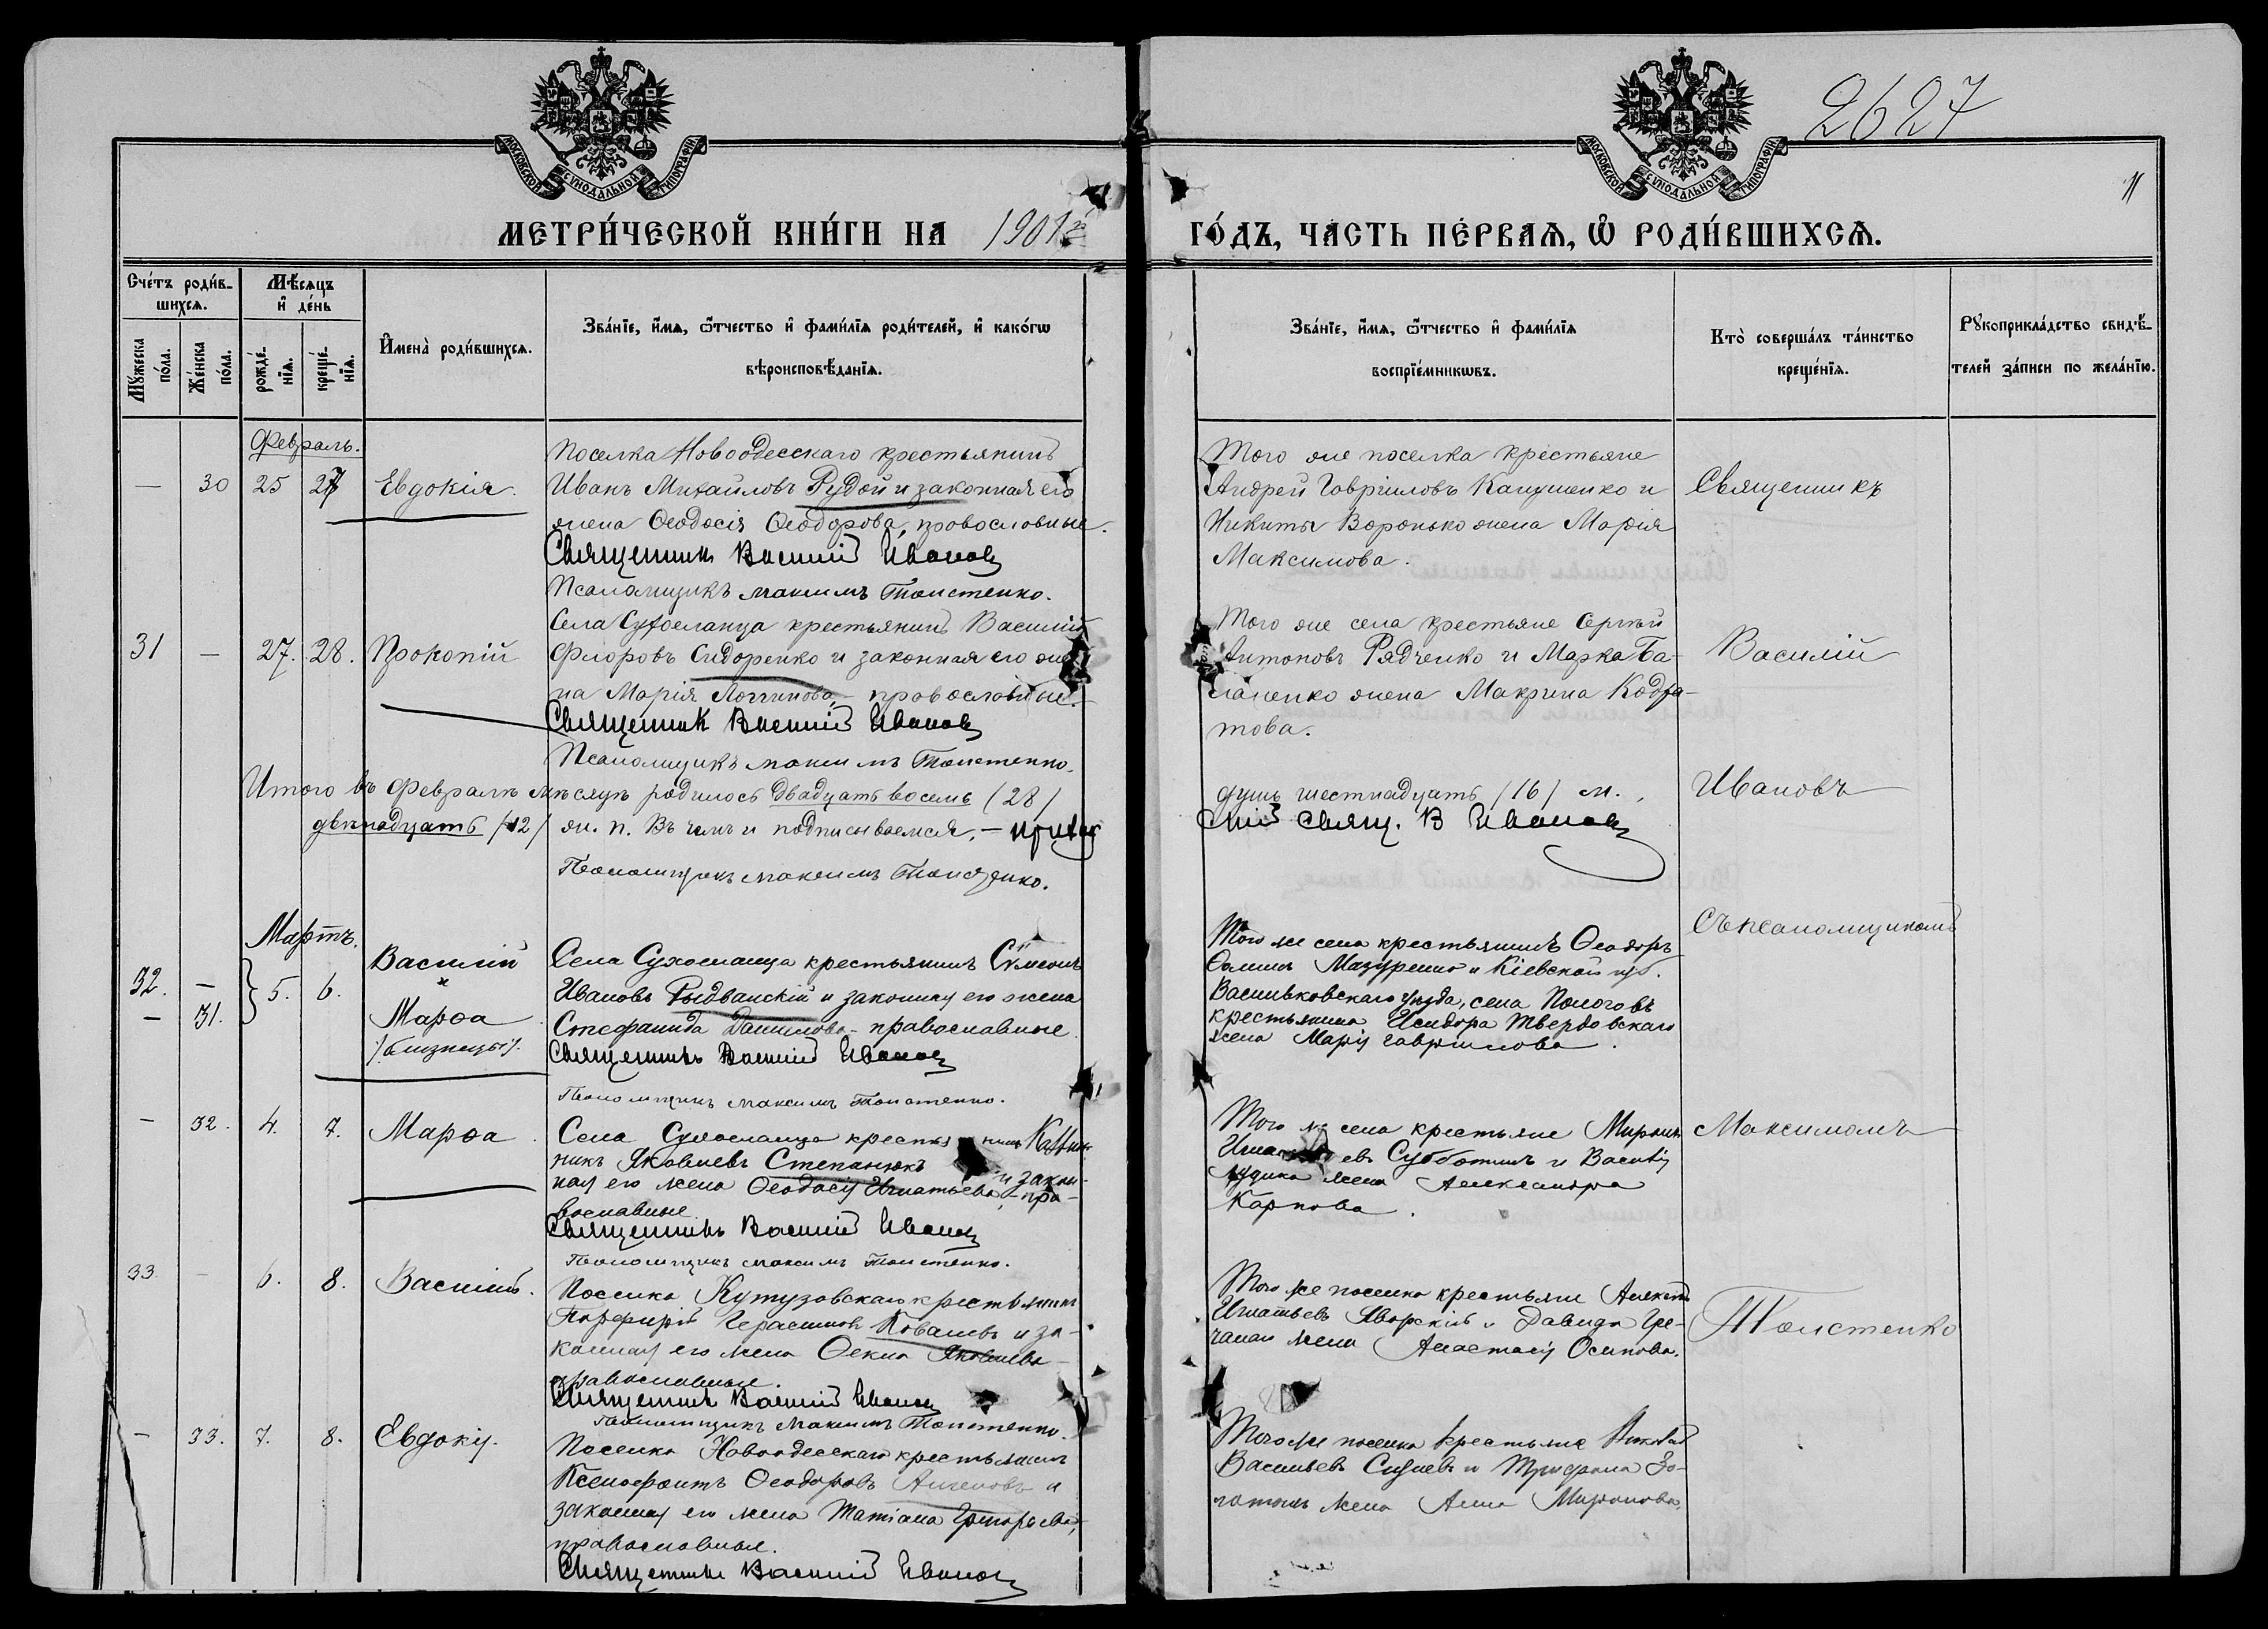 2627
11
МОСКОВСКОЙ СѴНОДАЛЬНОЙ ТИПОГРАФІИ
МОСКОВСКОЙ СѴНОДАЛЬНОЙ ТИПОГРАФІИ
МЕТРИ́ЧЕСКОЙ КНИ́ГИ НА 1901й ГО́ДЪ, ЧА́СТЬ ПЕ́РВАѦ, Ѽ РОДИ́ВШИХСѦ.
Сче́тъ роди́в-
шихсѧ.
Мꙋ́жеска
по́ла.
Же́нска
по́ла.
Мѣ́сѧцъ
и҆ де́нь
рожде́-
нїѧ.
креще́-
нїѧ.
И҆мена̀ роди́вшихсѧ.
Зва́нїе, и҆́мѧ, ѻ҆́тчество и҆ фами́лїѧ роди́телей, и҆ како́гѡ
вѣроисповѣ́данїѧ.
Зва́нїе, и҆́мѧ, ѻ҆́тчество и҆ фами́лїѧ
воспрїе́мникѡвъ.
Кто̀ соверша́лъ та́инство
креще́нїѧ.
Рꙋкоприкла́дство свидѣ́-
телей за́писи по жела́нїю.
Февраль.
— 30 25 27 Евдокія.
Поселка Новоодесскаго крестьянинъ
Иванъ Михайловъ Рудой и законная его
жена Ѳеодосія Ѳеодорова, православные.
Священникъ Василій Ивановъ
Псаломщикъ Максимъ Толстенко.
Того же поселка крестьяне
Андрей Гавріиловъ и
Никиты Воронько жена Марія
Максимова.
Священникъ
31 — 27. 28. Прокопій
Села Сухоеланца крестьянинъ Василій
Флоровъ Сидоренко и законная его же-
на Марія Логгинова, – православные.
Священник Василій Ивановъ
Псаломщикъ Максимъ Толстенко.
Того же села крестьяне Сергѣй
Антоновъ Рядченко и Марка Ба-
жена Макрина Кодра-
това.
Василій
Итого въ Февралѣ мѣсяцѣ родилось двадцать восемь (28)
двѣнадцать (12) ж. п. Въ чемъ и подписываемся. –
Псаломщикъ Максимъ Толстенко.
душъ шестнадцать (16) м.,
Свящ. В Ивановъ
Ивановъ
Съ псаломщикомъ
Мартъ.
32. — 5. 6. Василій
— 31. Марѳа
(близнецы).
Села Сухоеланца крестьянинъ Сѵмеонъ
Ивановъ Рыдванскій и законная его жена
Стефанида Данилова – православные.
Священникъ Василій Ивановъ
Псаломщикъ Максимъ Толстенко.
Того же села крестьянинъ Ѳеодоръ
Ѳоминъ Мазуренко и Кіевской губ.
Васильковскаго уѣзда, села Пологовъ
крестьянина Исидора Твердовскаго
жена Марія Гавріилова.
– 32. 4. 7. Марѳа.
Села Сухоеланца крестьянинъ Каллин-
никъ Яковлевъ Степанюкъ и закон-
ная его жена Ѳеодосія Игнатьева, – пра-
вославные
Священникъ Василій Ивановъ
Псаломщикъ Максимъ Толстенко.
Того же села крестьяне Миронъ
Субботинъ и Василія
жена Александра
Карпова.
Максимомъ
33 – 6. 8. Василій.
Поселка Кутузовскаго крестьянинъ
Порфирій Герасимовъ Ковалевъ и за-
конная его жена Ѳекла Яковлева –
православные.
Священникъ Василій Ивановъ
Псаломщикъ Максимъ Толстенко.
Того же поселка крестьяне Алексѣй
Игнатьевъ Яворскій и Давида Гре-
жена Анастасія Осипова.
Толстенко
– 33. 7. 8. Евдокія.
Поселка Новоодесскаго крестьянинъ
Ксенофонтъ Ѳеодоровъ и
законная его жена Татіана Григорьева,
православные.
Священникъ Василій Ивановъ
Того же поселка крестьяне
Васильевъ и Трифона Зо-
жена Анна Миронова.